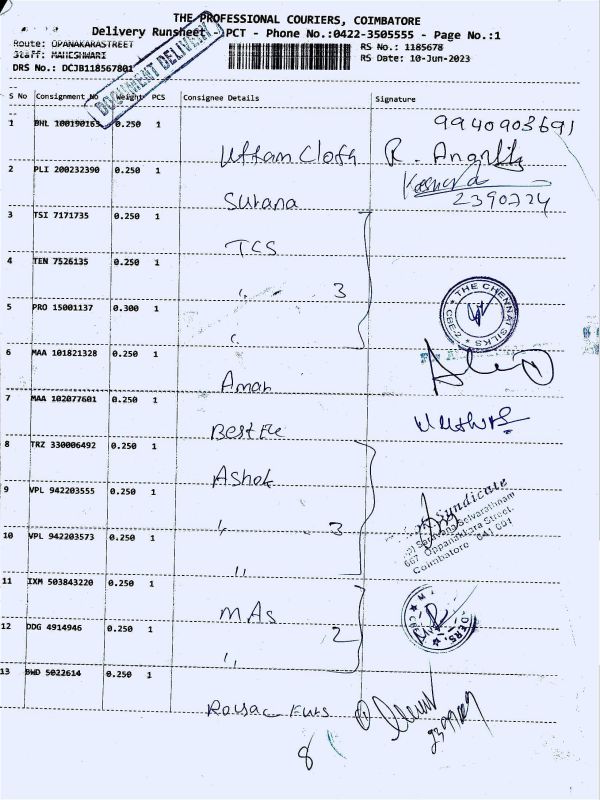 THE PROFESSIONAL COURIERS, COIMBATORE
Delivery Runsheet - PCT - Phone No.:0422-3505555 - Page No.:1
Route: OPANAKARASTREET
Staff: MAHESHWARI
DRS No.: DCJB118567801
RS No.: 1185678
RS Date: 10-Jun-2023
DOCUMENT DELIVERY
S No Consignment No Weight PCS Consignee Details Signature
1 BHL 100190163 0.250 1
9940903691
Uttam Cloth R.
2 PLI 200232390 0.250 1
2390724
Surana
3 TSI 7171735 0.250 1
TCS
4 TEN 7526135 0.250 1
" 3
THE CHENNAI SILKS
CBE-2
5 PRO 15001137 0.300 1
"
6 MAA 101821328 0.250 1
Aman
7 MAA 102077601 0.250 1
8 TRZ 330006492 0.250 1
Ashok
9 VPL 942203555 0.250 1
" 3
Syndicate
Saravana Selvarathnam
667, Oppanakkara Street,
Coimbatore - 641 001
10 VPL 942203573 0.250 1
"
11 IXM 503843220 0.250 1
MAs
12 DDG 4914946 0.250 1
" 2
13 BWD 5022614 0.250 1
8